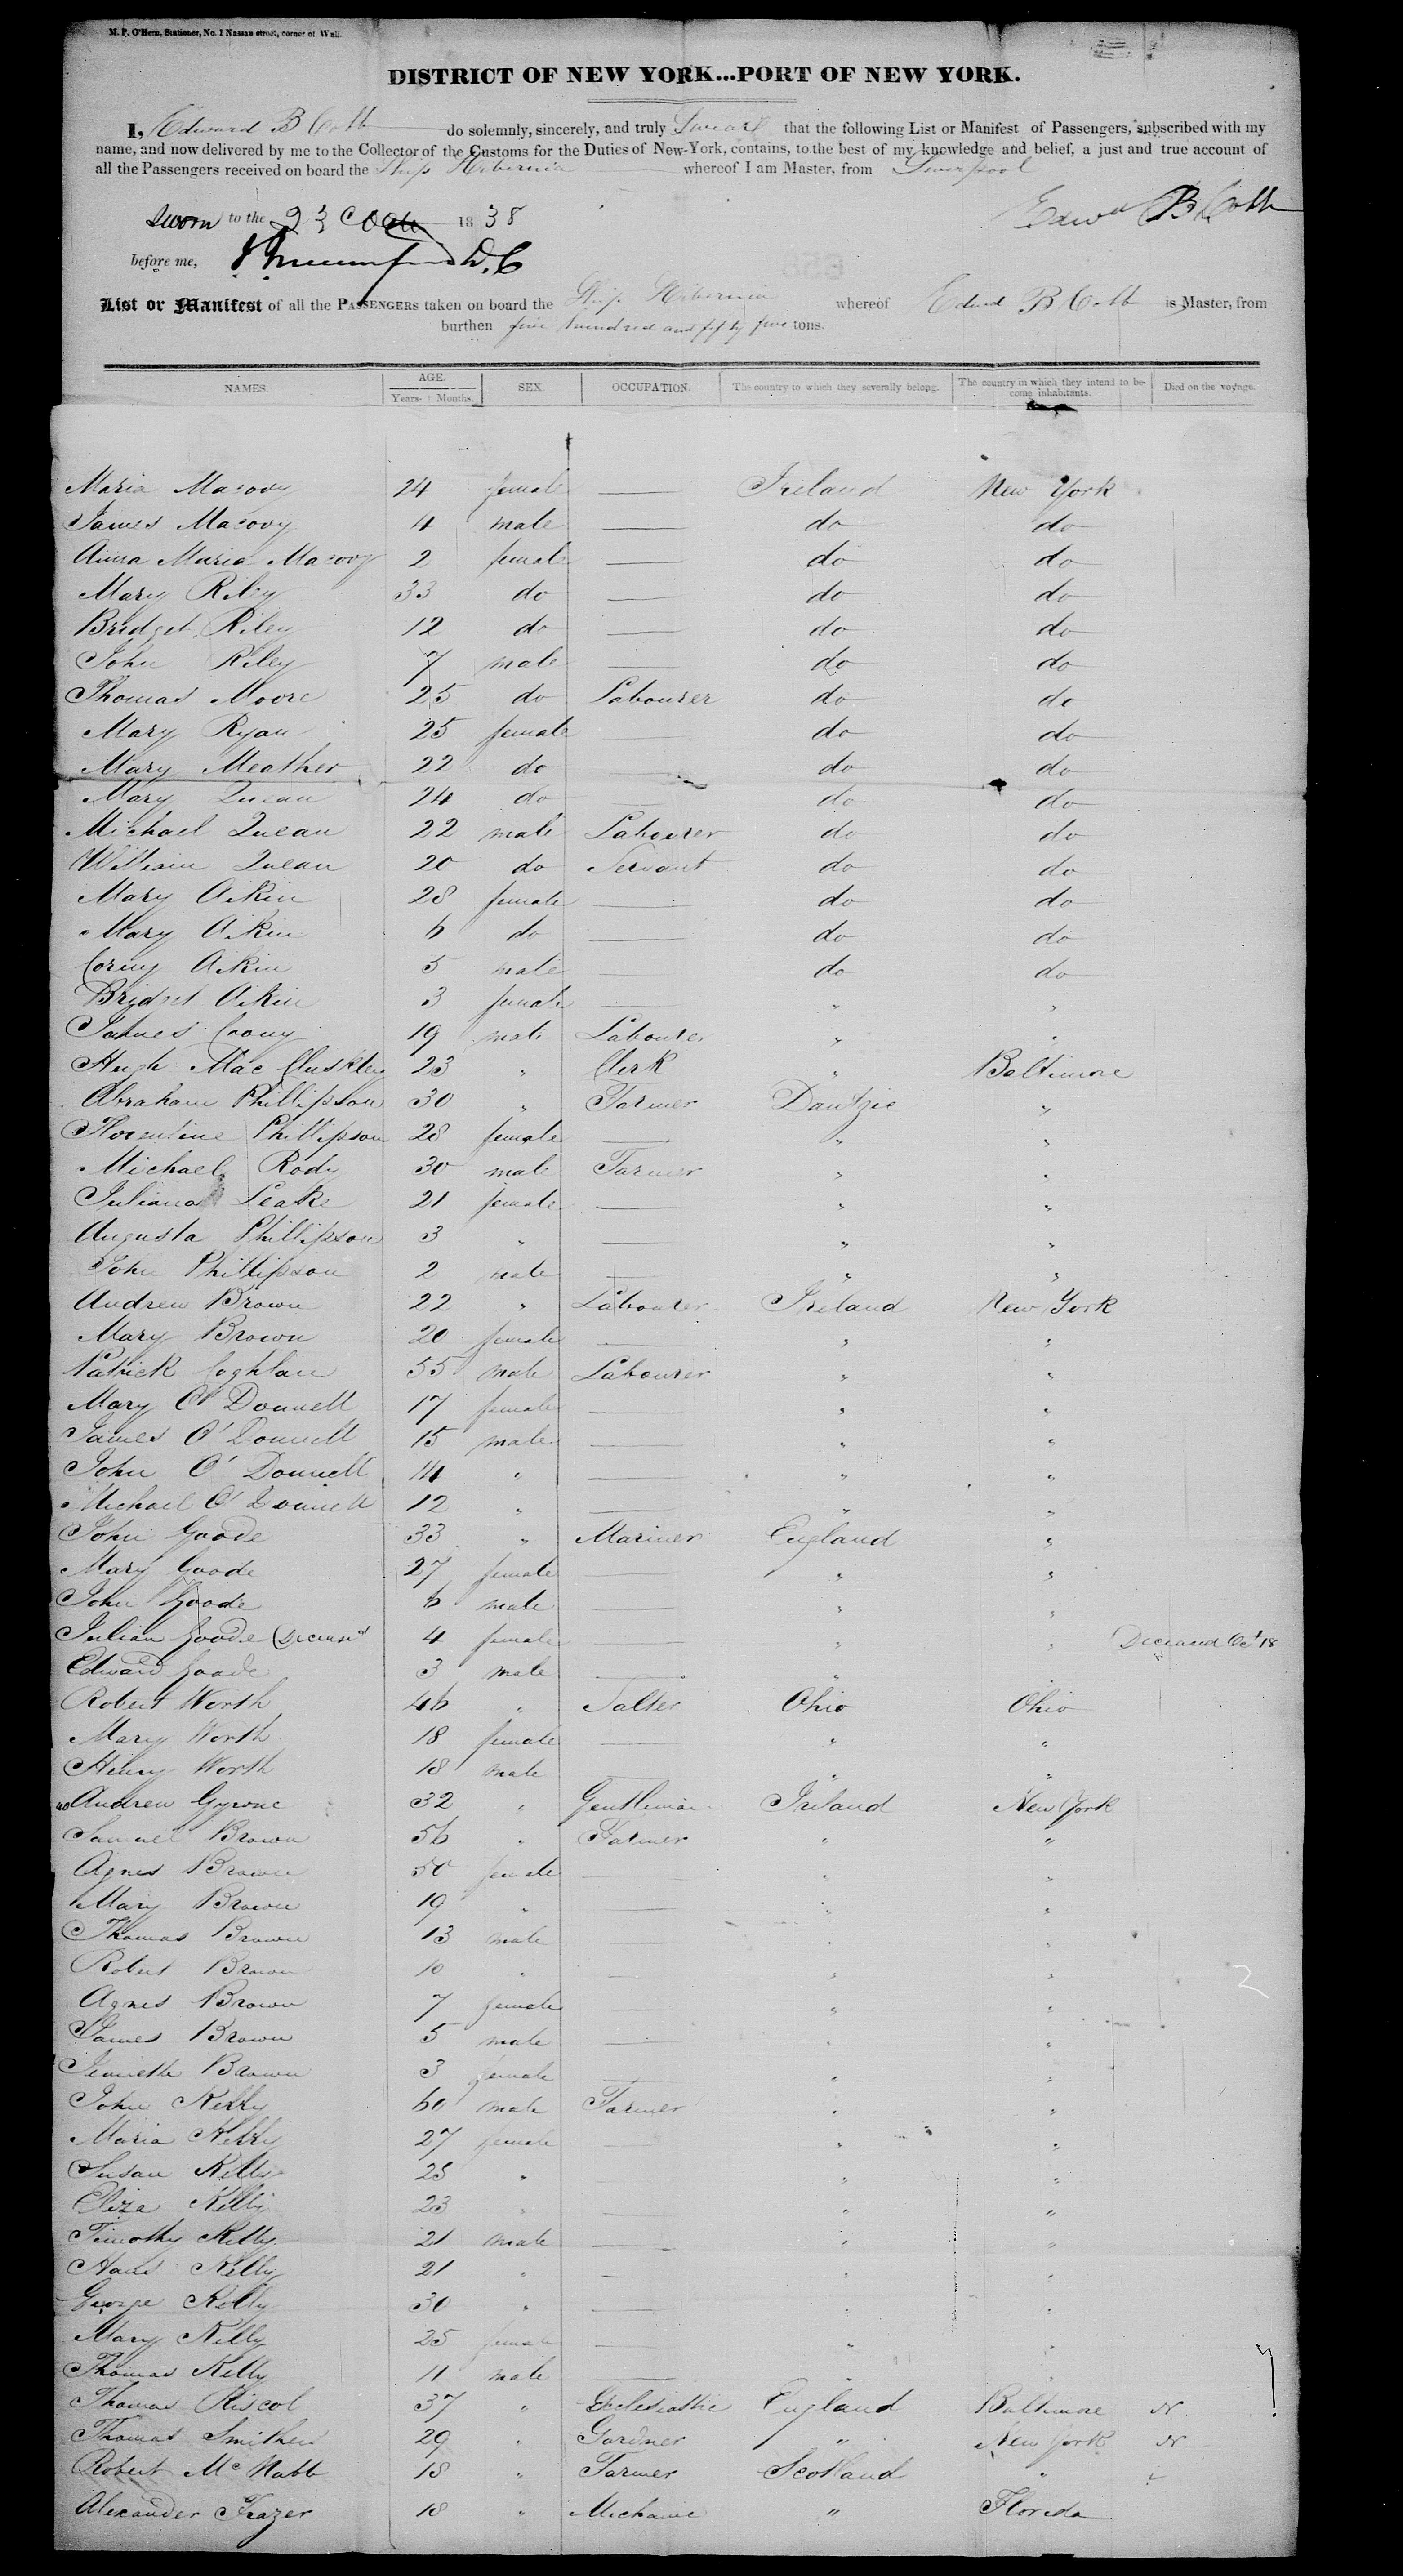 M. P. O'Hern, Stationer, No. 1 Nassau street, corner of Wall.
DISTRICT OF NEW YORK...PORT OF NEW YORK.
I, Edward B Cobb do solemnly, sincerely, and truly Swear that the following List or Manifest of Passengers, subscribed with my
name, and now delivered by me to the Collector of the Customs for the Duties of New-York, contains, to the best of my knowledge and belief, a just and true account of
all the Passengers received on board the Ship Hibernia whereof I am Master, from Liverpool
Sworn to the 23 Oct 1838 Edwd B Cobb
before me, D.C
List or Manifest of all the PASSENGERS taken on board the Ship Hibernia whereof Edwd B Cobb is Master, from
burthen five hundred and fifty five tons.
NAMES. AGE. SEX. OCCUPATION. The country to which they severally belong. The country in which they intend to become inhabitants. Died on the voyage.
Years. Months.
Maria Macovy 24 female — Ireland New York
James Macovy 4 male — do do
Anna Maria Macovy 2 female — do do
Mary Riley 33 do — do do
Bridget Riley 12 do — do do
John Riley 7 male — do do
Thomas Moore 25 do Labourer do do
Mary Ryan 25 female — do do
Mary Meather 22 do — do do
Mary Quean 24 do — do do
Michael Quean 22 male Labourer do do
William Quean 20 do Servant do do
Mary Aikin 28 female — do do
Mary Aikin 6 do — do do
Corny Aikin 5 male — do do
Bridget Aikin 3 female — " "
James Coony 19 male Labourer " "
Hugh Mac Cluskey 23 " Clerk " Baltimore
Abraham Phillipson 30 " Farmer Dantzic "
Florentine Phillipson 28 female — " "
Michael Rody 30 male Farmer " "
Juliana Leake 21 female — " "
Augusta Phillipson 3 " — " "
John Phillipson 2 male — " "
Andrew Brown 22 " Labourer Ireland New York
Mary Brown 20 female — " "
Patrick Coghlan 55 male Labourer " "
Mary O'Donnell 17 female — " "
James O'Donnell 15 male — " "
John O'Donnell 14 " — " "
Michael O'Donnell 12 " — " "
John Goode 33 " Mariner England "
Mary Goode 27 female — " "
John Goode 6 male — " "
Julian Goode (Deceasd 4 female — " " Deceased Oct 18
Edward Goode 3 male — " "
Robert Worth 46 " Salter Ohio Ohio
Mary Worth 18 female — " "
Henry Worth 18 male — " "
40 Andrew Gyrone 32 " Gentleman Ireland New York
Samuel Brown 56 " Farmer " "
Agnes Brown 50 female — " "
Mary Brown 19 " — " "
Thomas Brown 13 male — " "
Robert Brown 10 " — " "
Agnes Brown 7 female — " "
James Brown 5 male — " "
Jennette Brown 3 female — " "
John Kelly 60 male Farmer " "
Maria Kelly 27 female — " "
Susan Kelly 25 " — " "
Eliza Kelly 23 " — " "
Timothy Kelly 21 male — " "
Hans Kelly 21 " — " "
George Kelly 30 " — " "
Mary Kelly 25 female — " "
Thomas Kelly 11 male — " "
Thomas Riscol 37 " Ecclesiastic England Baltimore N
Thomas Smithers 29 " Gardner " New York N
Robert McNabb 18 " Farmer Scotland "
Alexander Frazer 18 " Mechanic " Florida